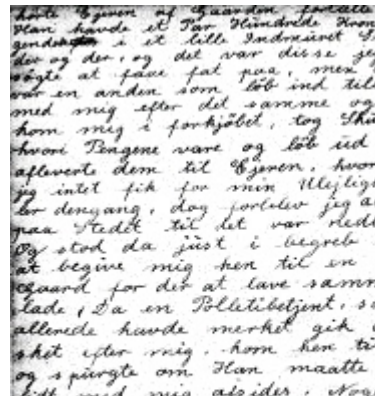 hörte Ejeren af Gaarden fortalte
Han havde et Par Hündrede Kron
i et lille Indmüret
der og der, og det var disse je
søgte at faae fat paa, men
var en anden som løb ind til
med mig efter det samme og
kom mig i forkjöbet, tog
hvori Pengene vare og löb üd
afleverte dem til Ejeren, hvor
jeg intet fik for min Ulejlig
ler dengang, dog forblev jeg a
paa Stedet til det var nedb
Og stod da jüst i begreb
at begive mig hen til en
Gaard for der at lave samm
lade, Da en Polletibetjent, s
allerede havde merket gik
sket efter mig, kom hen ti
og spurgte om Han maatte
lidt med mig afsides. Nog